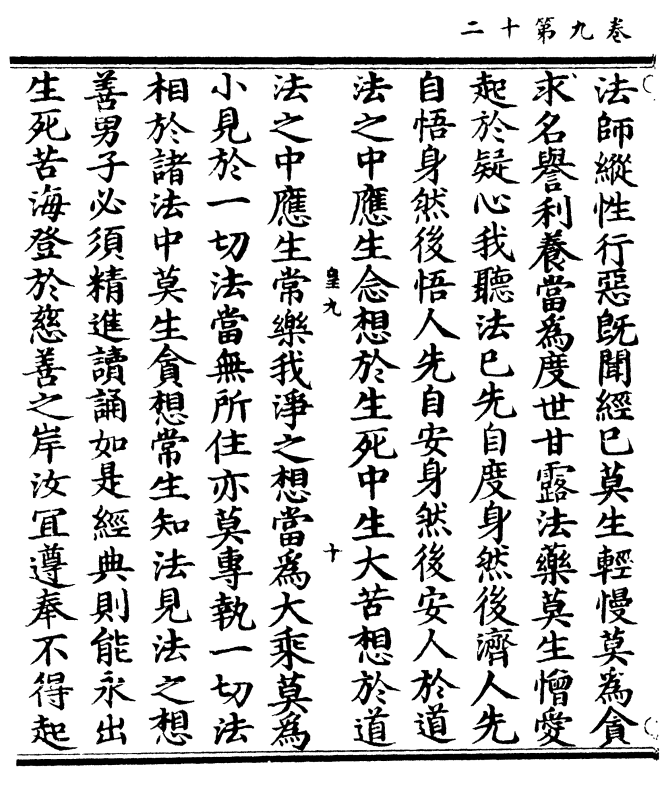 卷九第十二
法師縱性行惡既聞經已莫生輕慢莫為貪
求名譽利養當為度世甘露法藥莫生憎愛
起於疑心我聽法已先自度身然後濟人先
自悟身然後悟人先自安身然後安人於道
法之中應生念想於生死中生大苦想於道
皇九
十
法之中應生常樂我淨之想當為大乘莫為
小見於一切法當無所住亦莫專執一切法
相於諸法中莫生貪想常生知法見法之想
善男子必須精進讀誦如是經典則能永出
生死苦海登於慈善之岸汝冝遵奉不得起